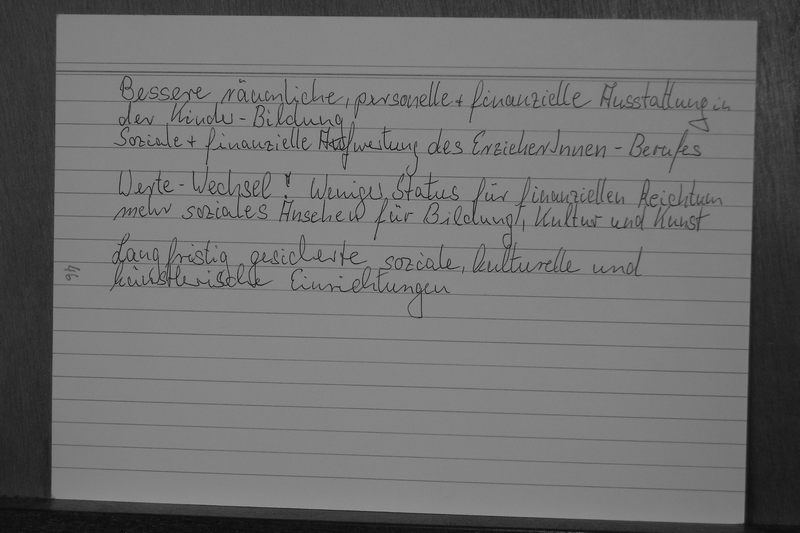 Bessere räumliche, personelle + finanzielle Ausstattung in
der Kinder-Bildung
Soziale + finanzielle Aufwertung des ErzieherInnen-Berufes
Werte-Wechsel! Weniger Status für finanziellen Reichtum
mehr soziales Ansehen für Bildung, Kultur und Kunst
Langfristig gesicherte soziale, kulturelle und
künstlerische Einrichtungen
46